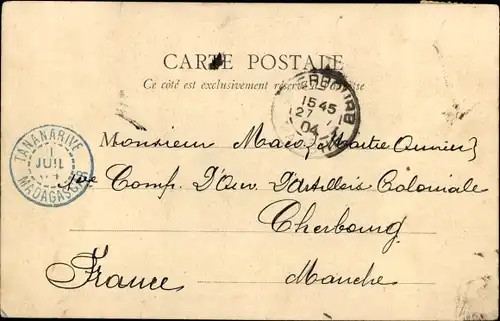 CARTE POSTALE
Ce côté est exclusivement réservé à l'adresse
CHERBOURG
15 45
27
04
TANANARIVE
JUIL
MADAGASCAR
Monsieur Maco, Maître Ouvrier
Comp. D'Ouv. D'Artillerie Coloniale
Cherbourg
France Manche